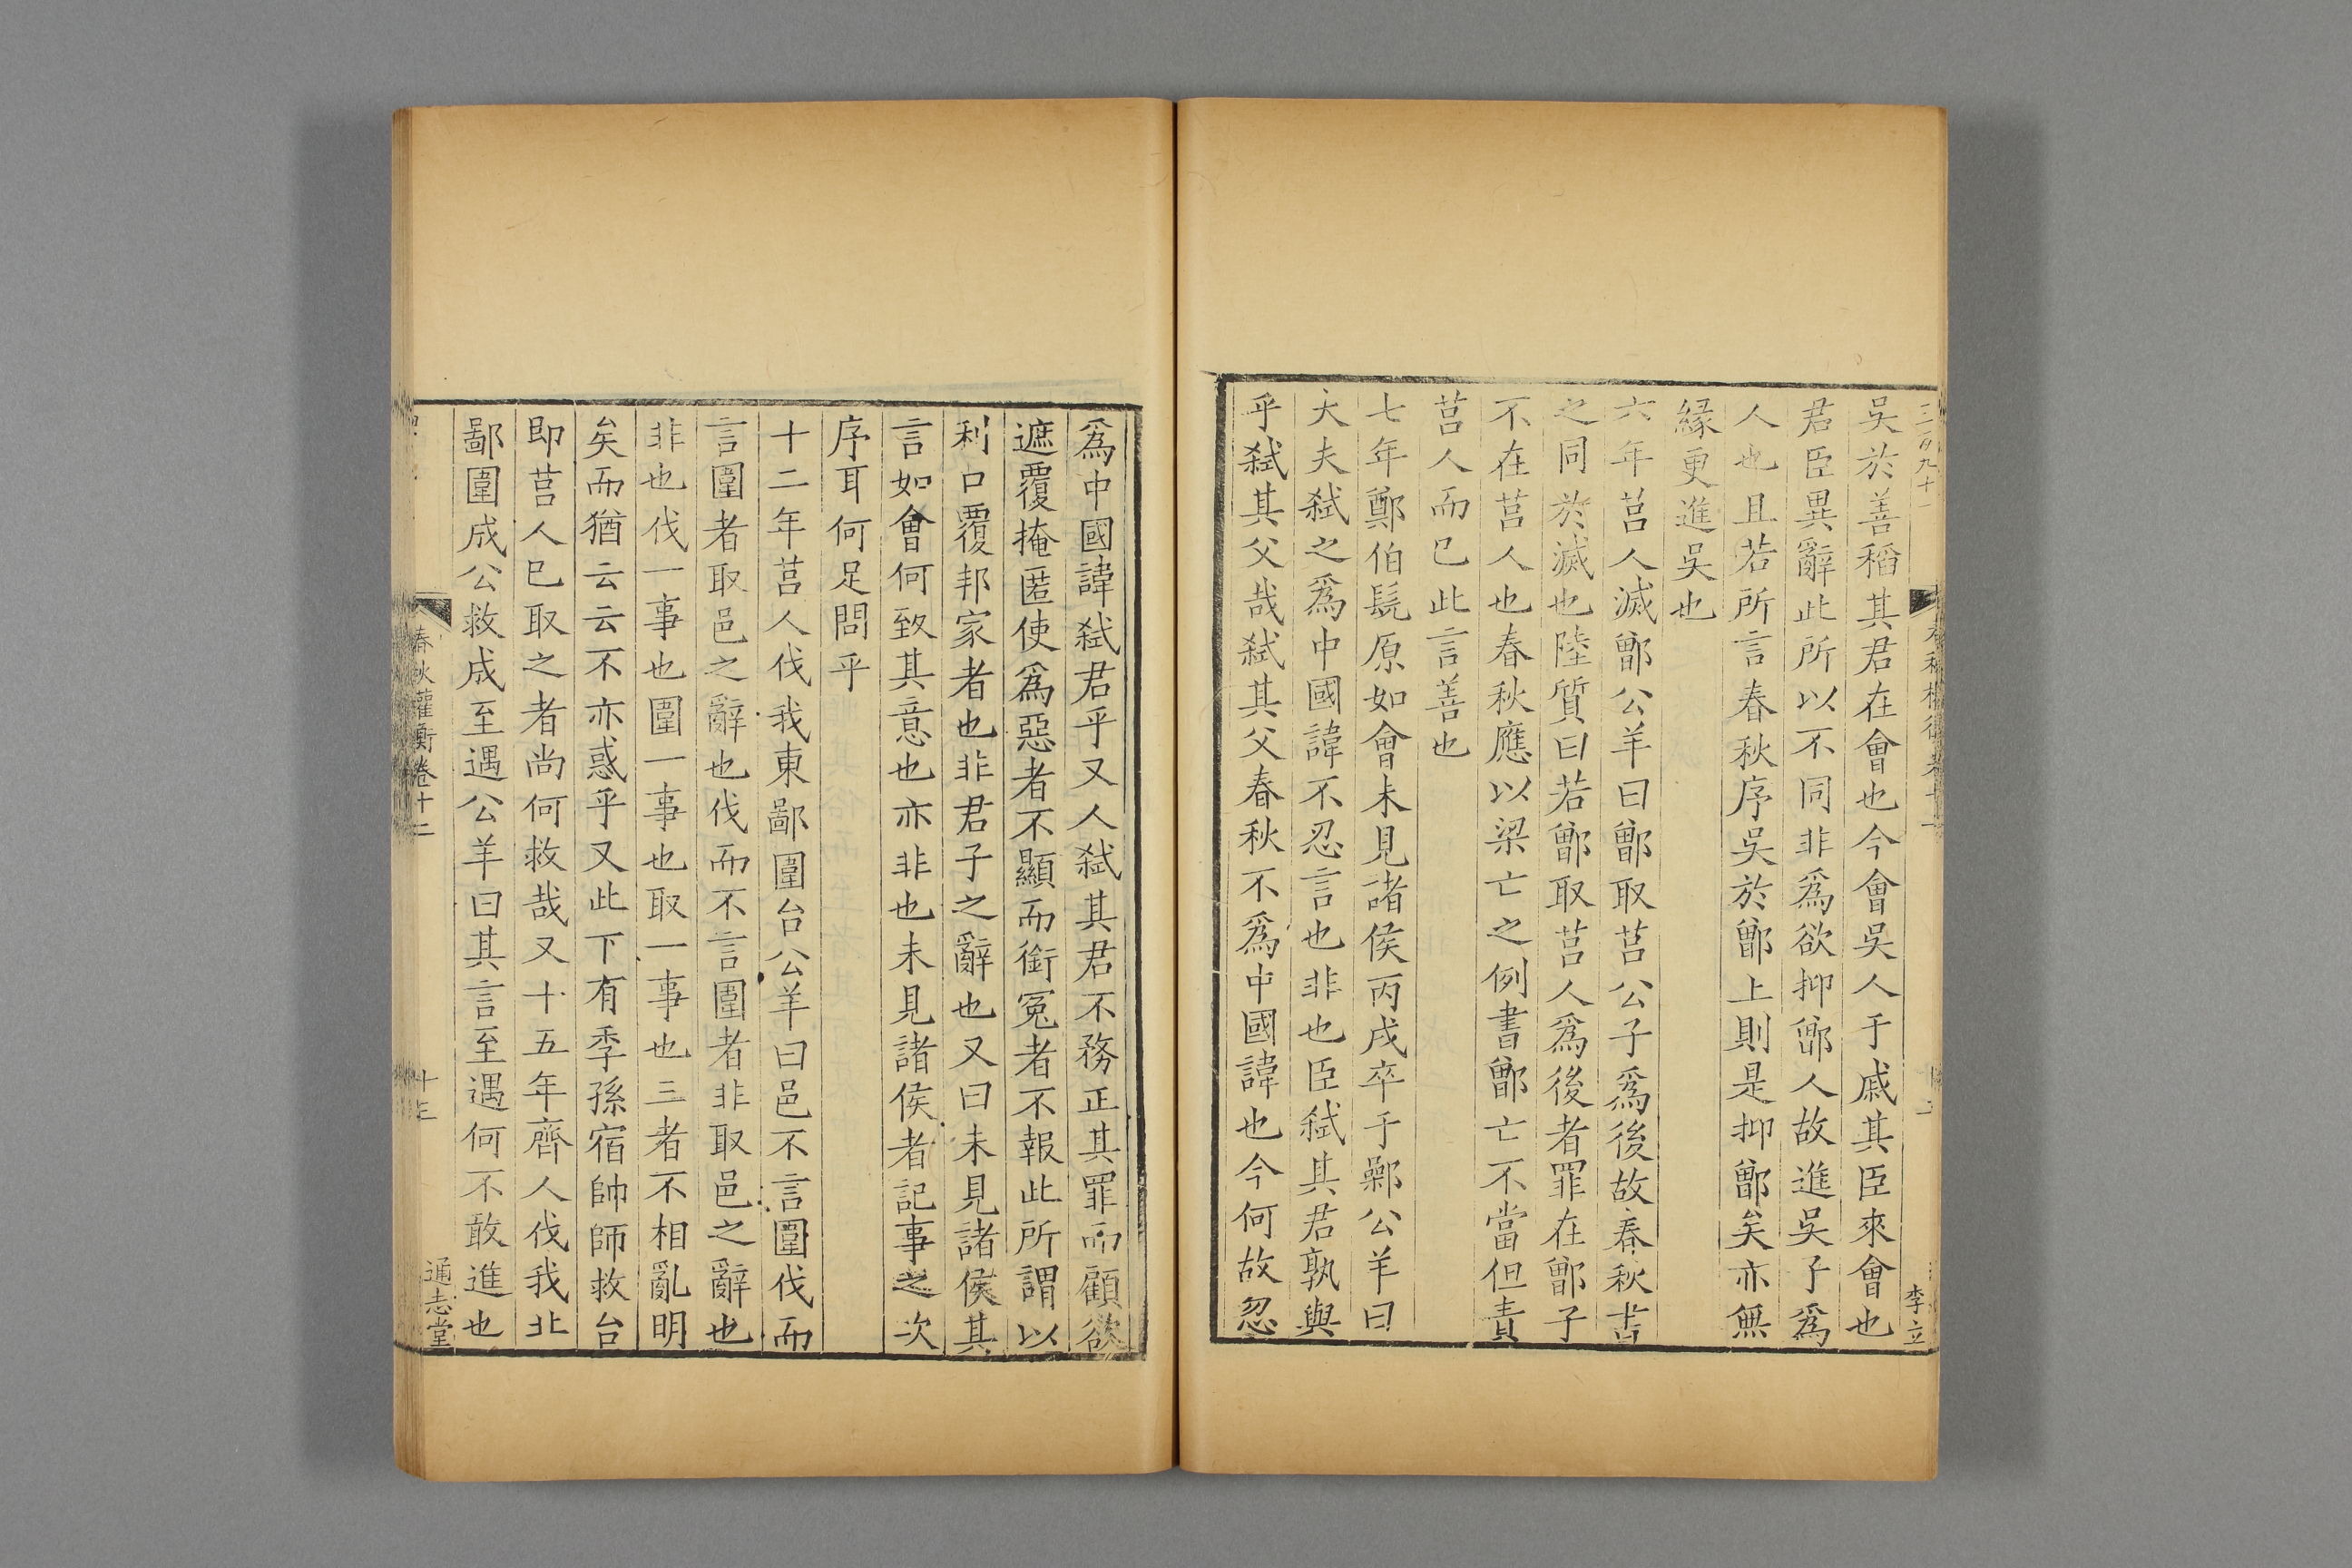 吳於善稻其君在會也今會吳人于戚其臣來會也
君臣異辭此所以不同非爲欲抑鄫人故進吳子爲
人也且若所言春秋序吳於鄫上則是抑鄫矣亦無
緣更進吳也
六年莒人滅鄫公羊曰鄫取莒公子爲後故春秋書
之同於滅也陸質曰若鄫取莒人爲後者罪在鄫子
不在莒人也春秋應以梁亡之例書鄫亡不當但責
莒人而已此言善也
七年鄭伯髡原如會未見諸侯丙戌卒于鄵公羊曰
大夫弑之爲中國諱不忍言也非也臣弑其君孰與
乎弑其父哉弑其父春秋不爲中國諱也今何故忍
李立
爲中國諱弑君乎又人弑其君不務正其罪而顧欲
遮覆掩匿使爲惡者不顯而銜冤者不報此所謂以
利口覆邦家者也非君子之辭也又曰未見諸侯其
言如會何致其意也亦非也未見諸侯者記事之次
序耳何足問乎
十二年莒人伐我東鄙圍台公羊曰邑不言圍伐而
言圍者取邑之辭也伐而不言圍者非取邑之辭也
非也伐一事也圍一事也取一事也三者不相亂明
矣而猶云云不亦惑乎又此下有季孫宿帥師救台
即莒人已取之者尚何救哉又十五年齊人伐我北
鄙圍成公救成至遇公羊曰其言至遇何不敢進也
春秋權衡卷十二
十三
通志堂